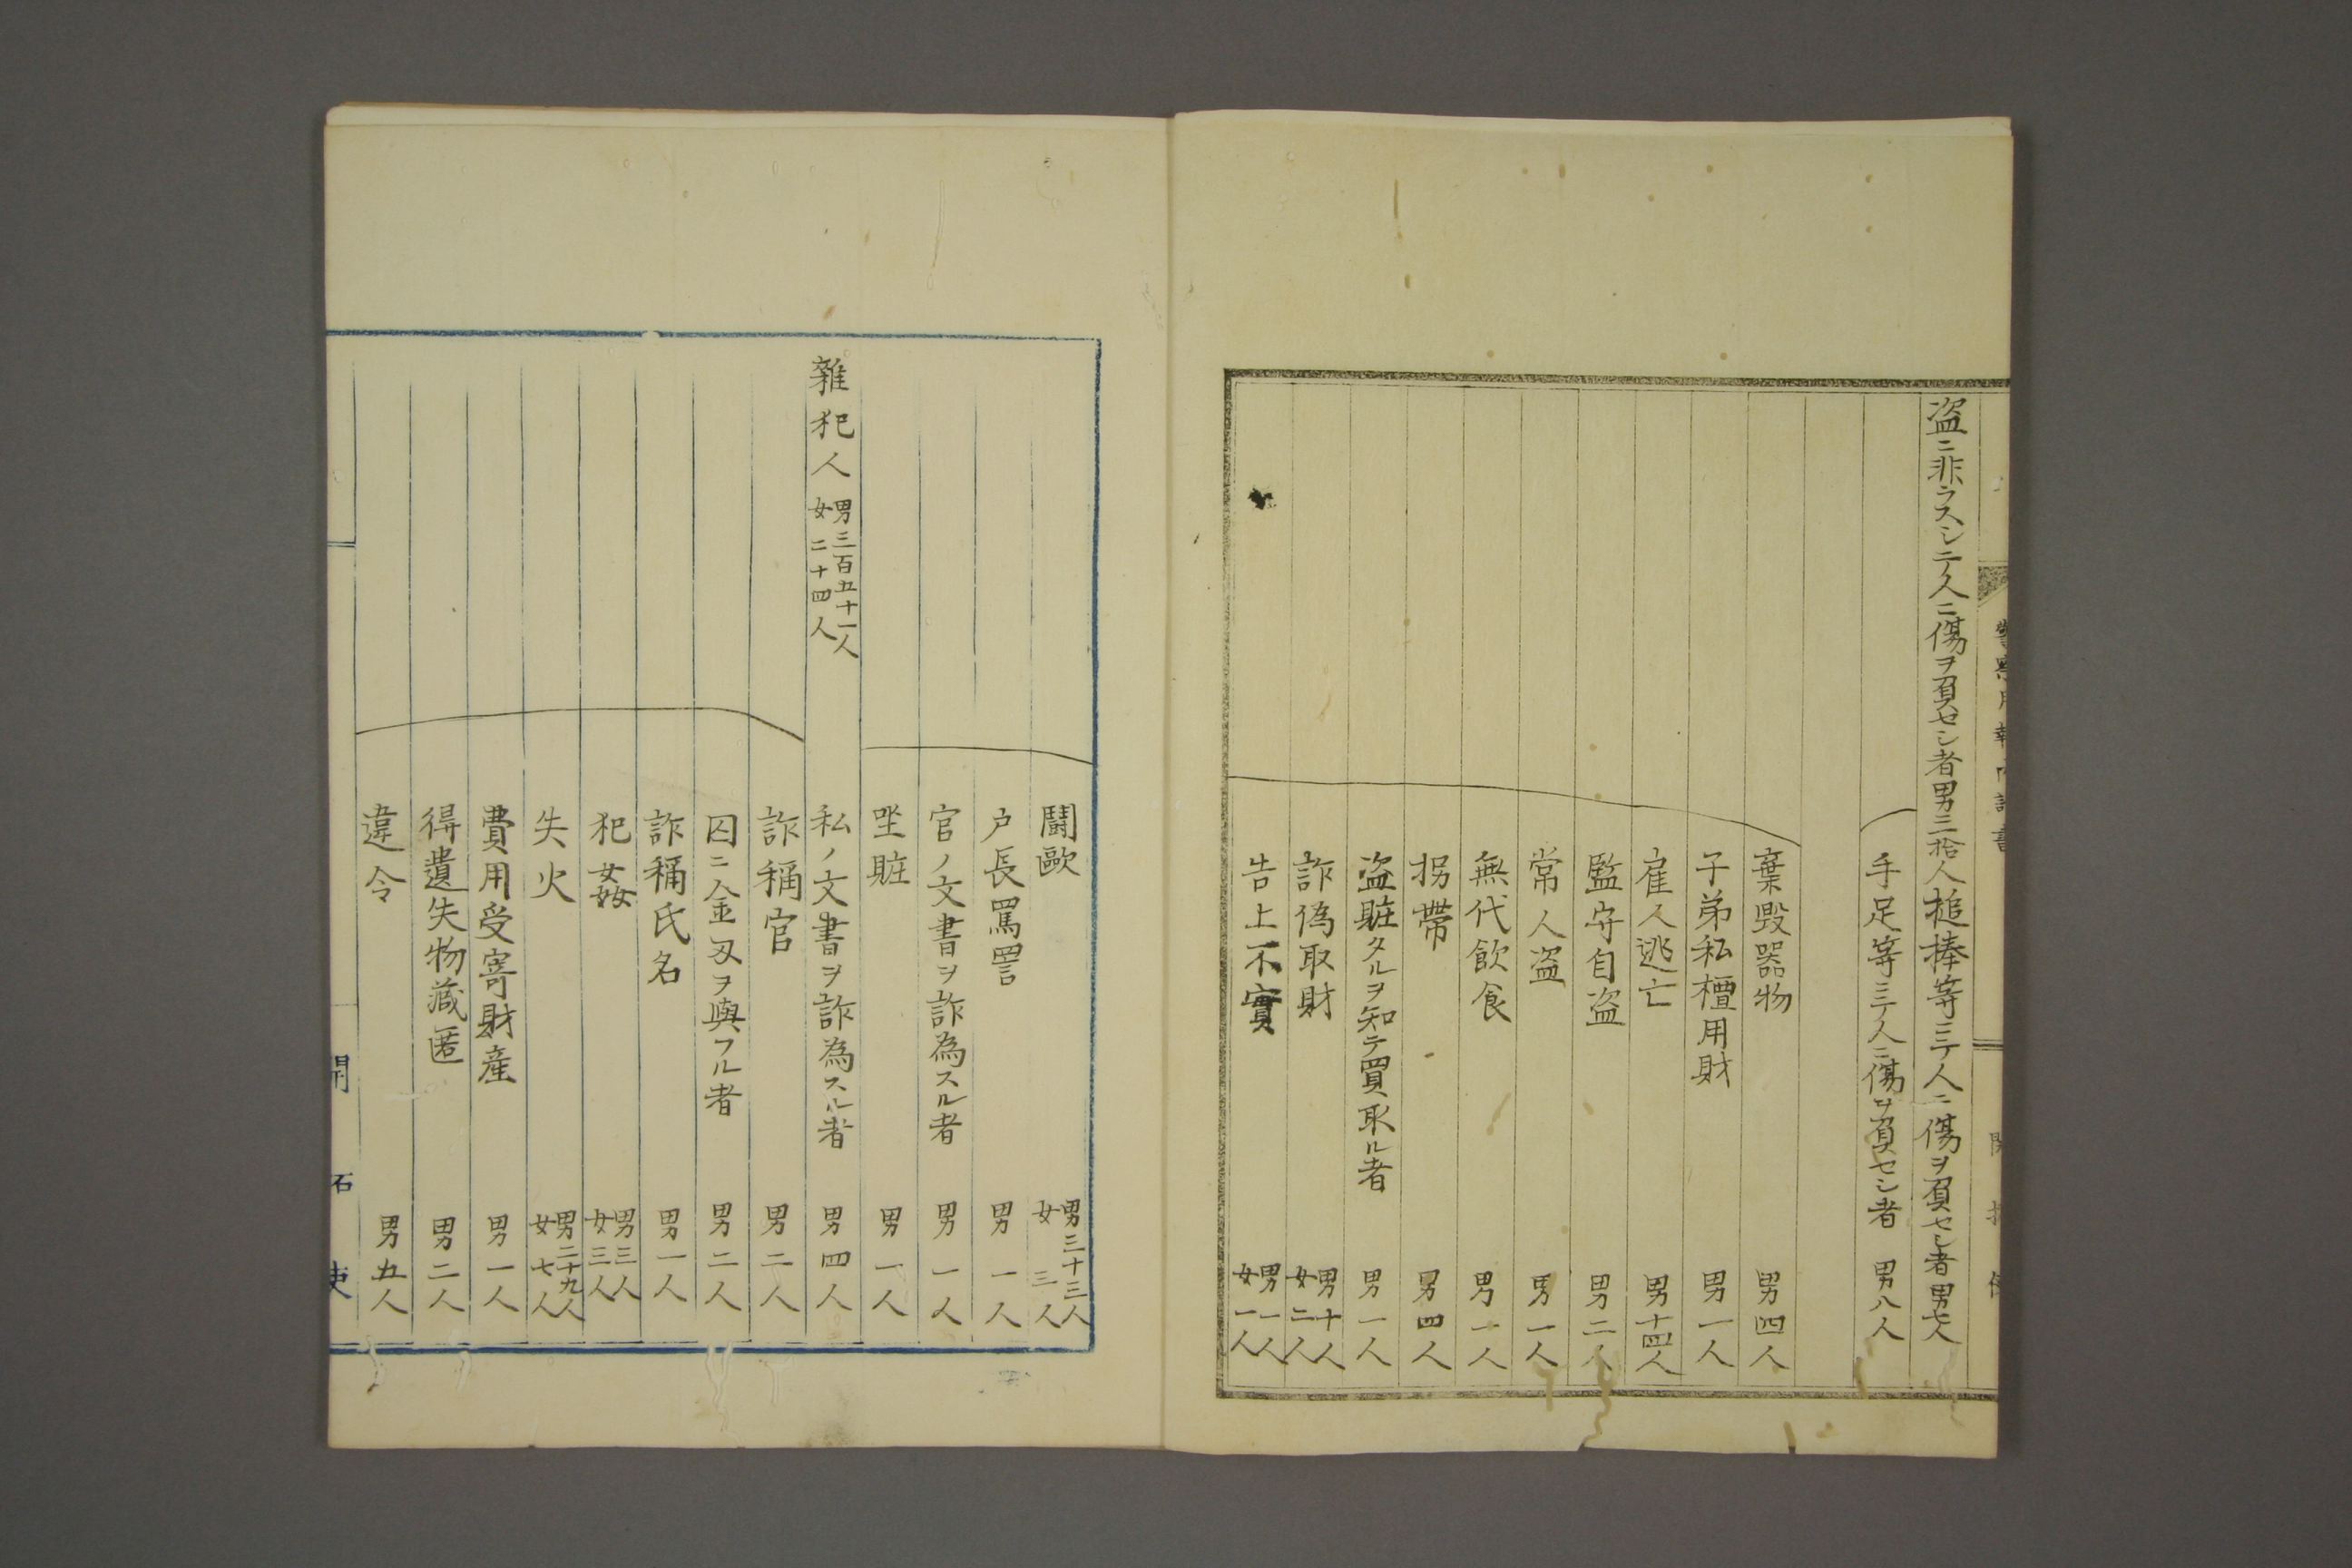 盗ニ非ラスシテ人ニ傷ヲ負セシ者男三拾人槌棒等ニテ人ニ傷ヲ負セシ者男七人
手足等ニテ人ニ傷ヲ負セシ者 男八人
棄毀器物 男四人
子弟私擅用財 男一人
雇人逃亡 男十四人
監守自盗 男二人
常人盗 男一人
無代飲食 男一人
拐帶 男四人
盗賍タルヲ知テ買取ル者 男一人
詐偽取財 男十人 女二人
告上不實 男一人 女一人
鬪歐 男三十三人 女三人
户長罵詈 男一人
官ノ文書ヲ詐為スル者 男一人
坐賍 男一人
雜犯人 男三百五十一人 女二十四人 私ノ文書ヲ詐為スル者 男四人
詐稱官 男二人
囚ニ金刄ヲ與フル者 男二人
詐稱氏名 男一人
犯姦 男三人 女三人
失火 男二十九人 女七人
費用受寄財産 男一人
得遺失物藏匿 男二人
違令 男五人
開拓使